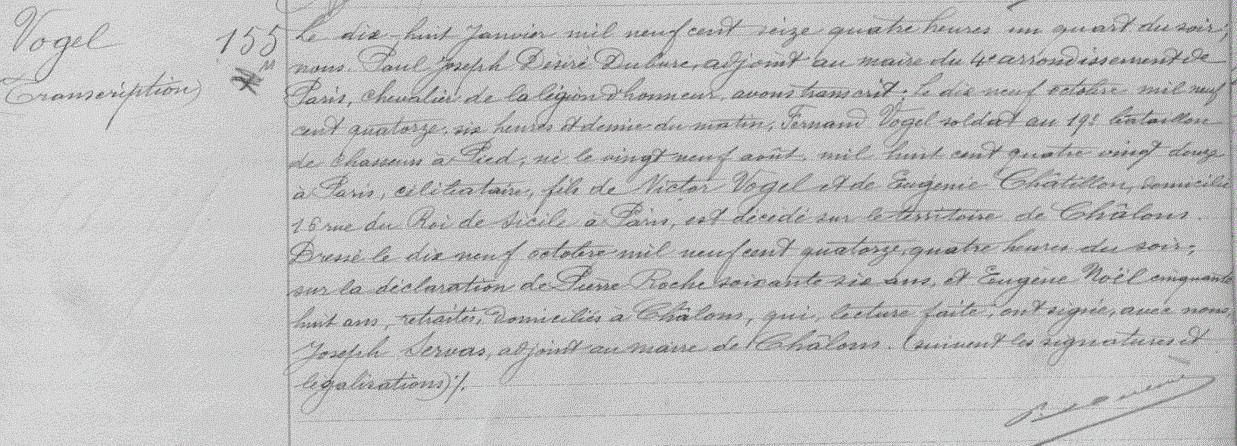 Vogel
155
M
(Transcription)
Le dix-huit Janvier mil neuf cent seize quatre heures un quart du soir,
nous Paul Joseph Désiré Dubure, adjoint au maire du 4e arrondissement de
Paris, chevalier de la légion d'honneur, avons transcrit: Le dix neuf octobre mil neuf
cent quatorze, six heures et demie du matin, Fernand Vogel soldat au 19e bataillon
de chasseurs à Pied, né le vingt neuf août, mil huit cent quatre vingt douze
à Paris, célibataire, fils de Victor Vogel et de Eugénie Châtillon, domicilié
16 rue du Roi de Sicile à Paris, est décédé sur le territoire de Châlons.
Dressé le dix neuf octobre mil neuf cent quatorze, quatre heures du soir,
sur la déclaration de Pierre Roche soixante six ans, et Eugène Noël cinquante
huit ans, retraités, domiciliés à Châlons, qui, lecture faite, ont signée, avec nous,
Joseph Servas, adjoint au maire de Châlons. (suivent les signatures et
légalisations)./.